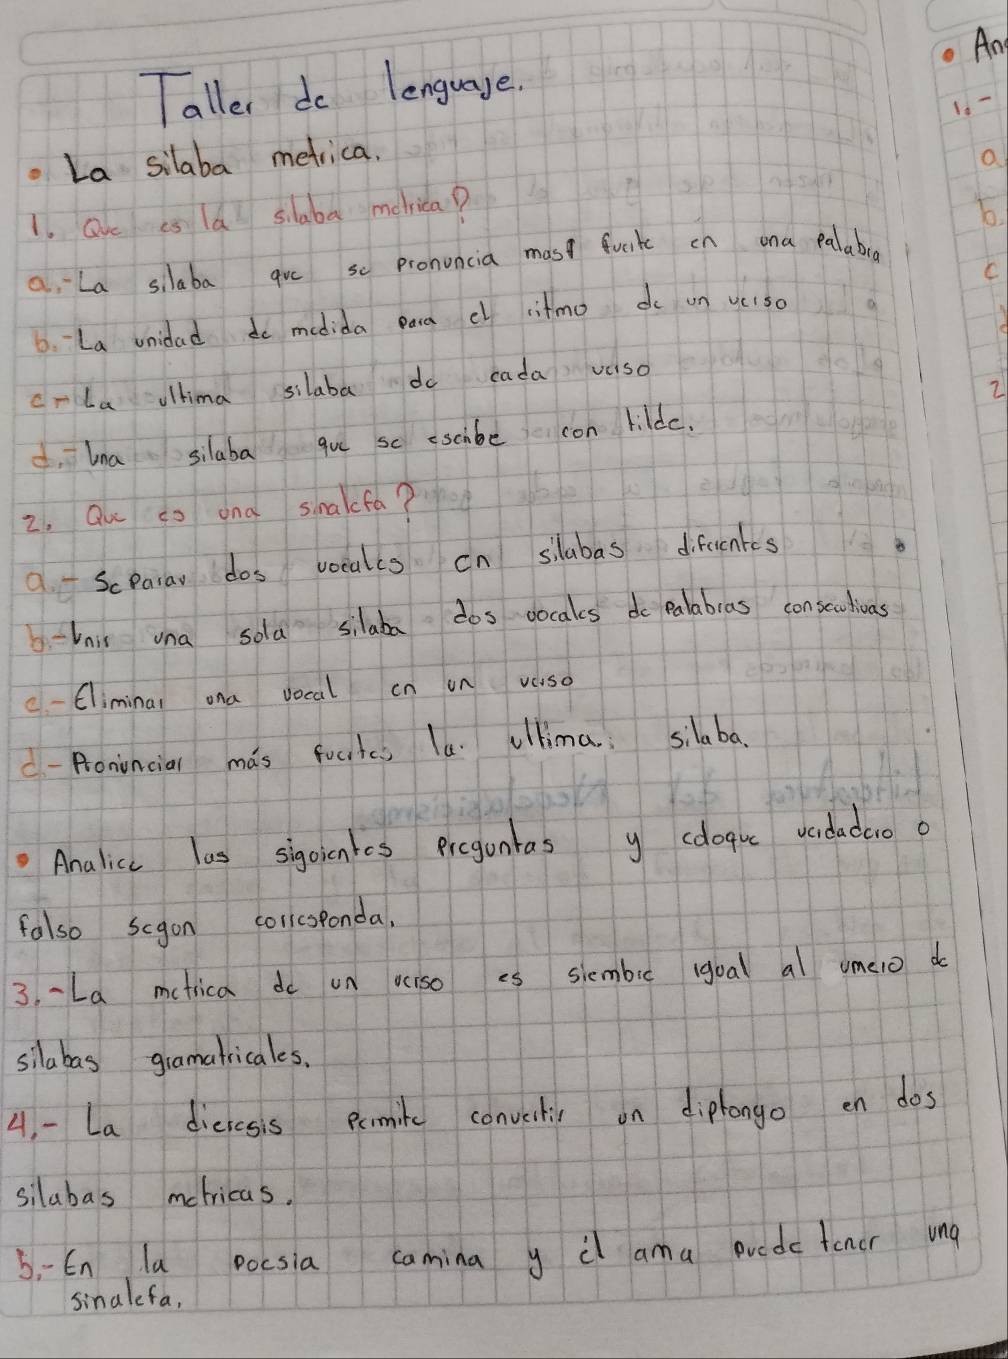 Taller de lenguaje.
• La silaba metrica.
1. Que es la silaba metrica?
a.- La silaba que se pronuncia mas fuerte en una palabra
b.- La unidad de medida para el ritmo de un verso
c- La ultima silaba de cada verso
d.- Una silaba que se escribe con tilde.
2. Que es una sinalefa?
a - Separar dos vocales en silabas diferentes
b- Unir una sola silaba dos vocales de palabras consecutivas
c.- Eliminar una vocal en un verso
d- Pronunciar más fuertes la ultima silaba.
• Analice las siguientes preguntas y coloque verdadero o
falso segun corresponda.
3.- La metrica de un verso es siembre igual al umero de
silabas gramatricales.
4.- La dieresis permite convertir un diptongo en dos
silabas metricas.
5.- En la poesia camina y él ama puede tener una
sinalefa.
• An
1.-
a
b.
c
2